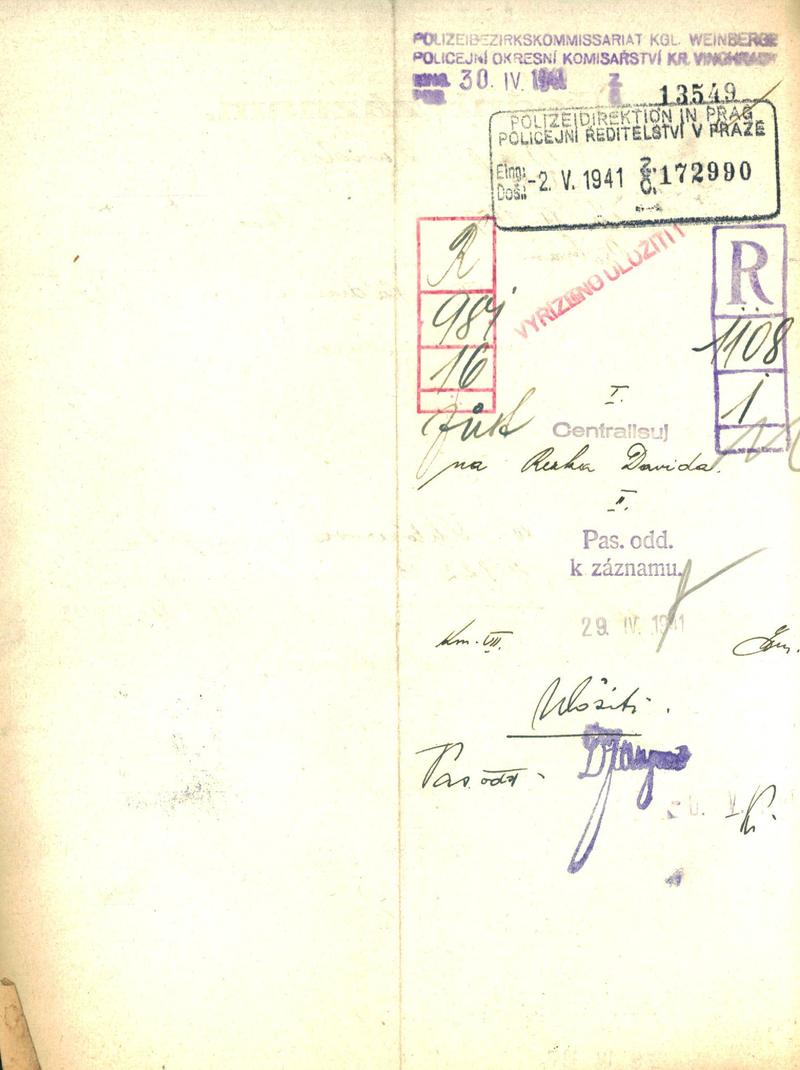 POLIZEIBEZIRKSKOMMISSARIAT KGL. WEINBERGE
POLICEJNÍ OKRESNÍ KOMISAŘSTVÍ KR. VINOHRADY
30. IV. 1941 Z 13549
POLIZEIDIREKTION IN PRAG
POLICEJNÍ ŘEDITELSTVÍ V PRAZE
Eing.: Doš.: -2. V. 1941 Z. Č. 172990
R
984
16
VYŘÍZENO ULOŽITI!
R
1108
1
I.
Centralisuj
na Davida.
II.
Pas. odd.
k záznamu.
29. IV. 1941
Km. VII.
Uložiti.
Pas. odd.